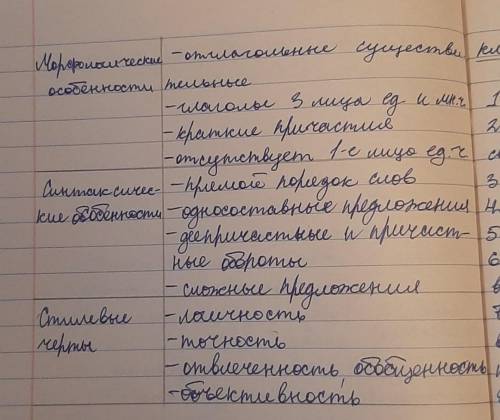 Морфологические -отглагольные существи
особенности тельные
-глаголы 3 лица ед и мн.ч.
-краткие причастия
-отсутствует 1-е лицо ед.ч
Синтаксичес- -прямой порядок слов
кие особенности -односоставные предложения
-деепричастные и причаст-
ные обороты
-сложные предложения
Стилевые -логичность
черты -точность
-отвлеченность, обобщенность
-объективность
1
2
3
4
5
6